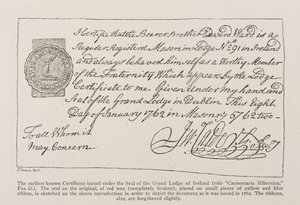 I Certifye that the Bearer Brother Edward Ward is a
Regular Registred Mason in Lodge No 91 in Ireland
and always behaved himself as a Worthy Member
of the Fraternity Which appears by the Lodge
Certificate to me Given Under My hand and
Seal of the Grand Lodge in Dublin This Eight
Day of January 1762 in Masonry 5762
To all Whom it
May Concern
The earliest known Certificate issued under the Seal of the Grand Lodge of Ireland (vide "Cæmentaria Hibernica,"
Fas. ii.). The seal on the original, of red wax (completely broken), placed on small pieces of yellow and blue
ribbon, is sketched on the above reproduction in order to depict the document as it was issued in 1762. The ribbons,
also, are lengthened slightly.